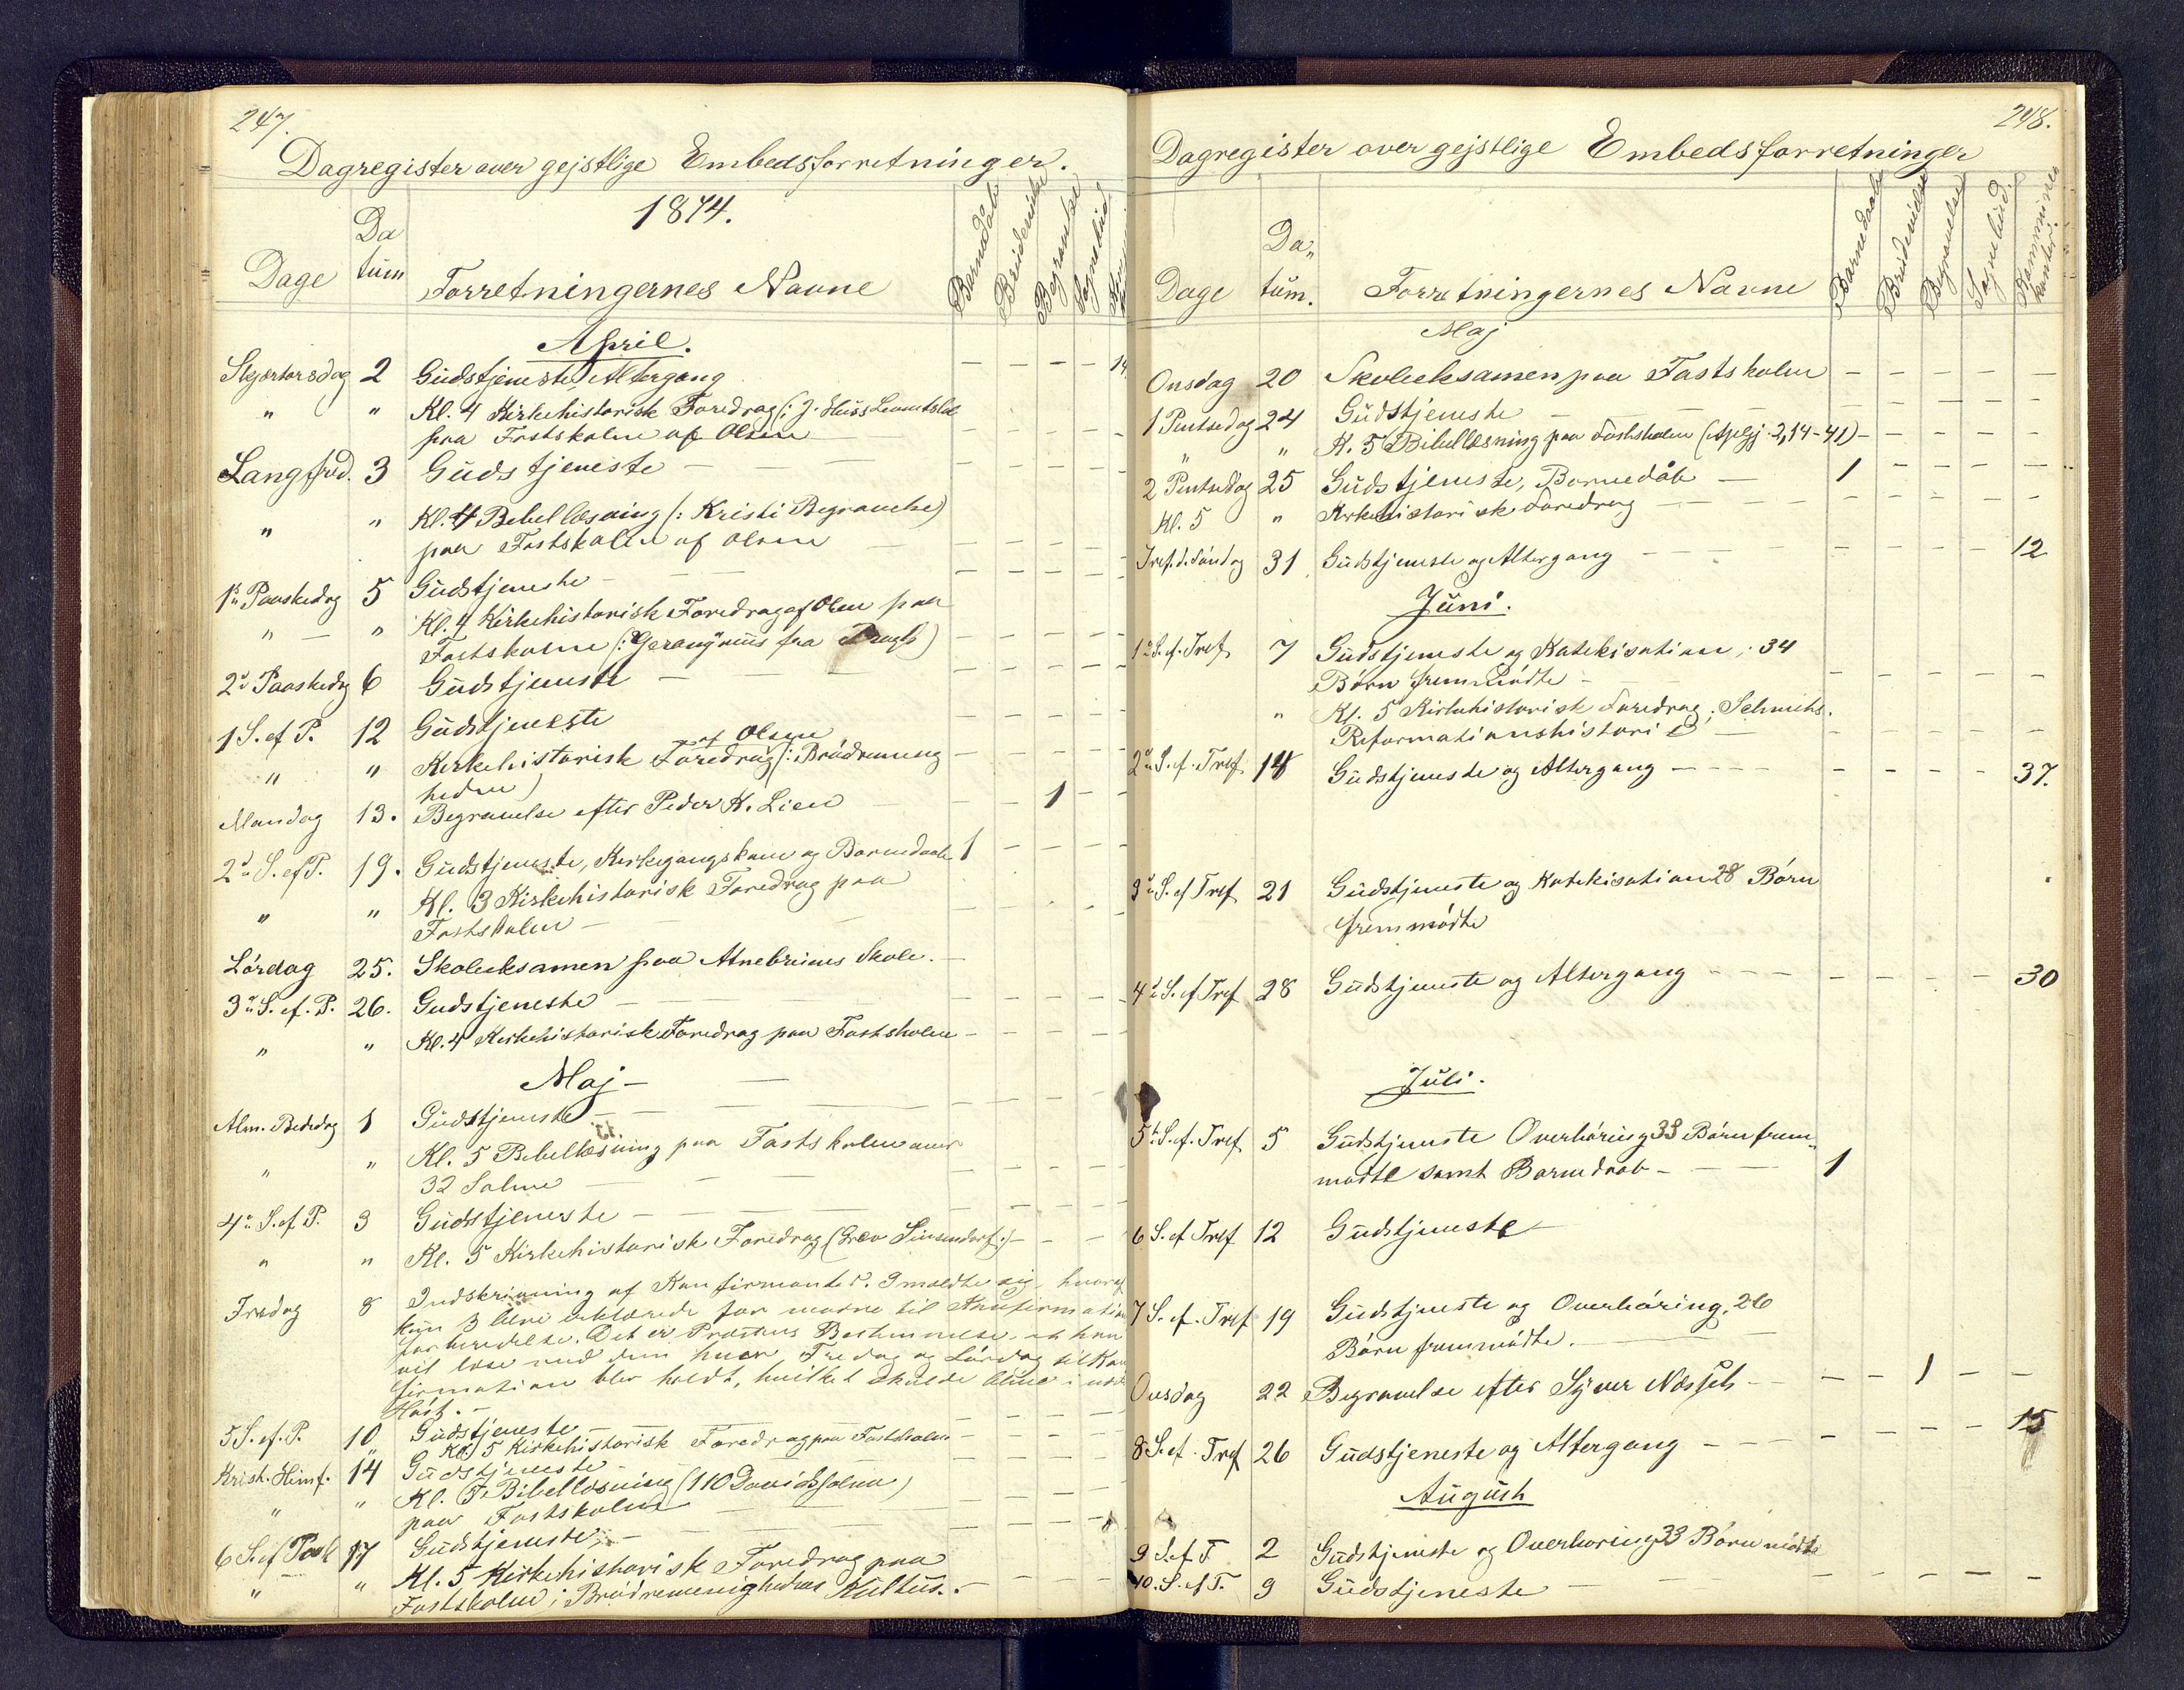 247.
Dagregister over gejstlige Embedsforretninger.
1874.
Dage
Da
tum
Forretningernes Navne
Barnedåb
Brudevielse
Begravelse
Sognebud
April.
Skjærtorsdag 2 Gudstjeneste, Altergang — — — 14
" " Kl. 4 Kirkehistorisk Foredrag (: J. Huss
paa Fastskolen af Olsen
Langfred. 3 Gudstjeneste
" " Kl. 4 Bibellæsning (: Kristi Begravelse)
paa Fastskolen af Olsen
1ste Paaskedag 5 Gudstjeneste
" " Kl. 4 Kirkehistorisk Foredrag af Olsen paa
Fastskolen (: fra
2d Paaskedag 6 Gudstjeneste
1 S. ef P. 12 Gudstjeneste
" " Kirkehistorisk Foredrag af Olsen (: Brødremenig
heden)
Mandag 13. Begravelse efter Peder K. Lien 1
2d S. ef P. 19. Gudstjeneste, Kirkegangskone og Barnedaab 1
" " Kl. 3 Kirkehistorisk Foredrag paa
Fastskolen
Lördag 25. Skoleeksamen paa Atnebruens Skole.
3d S. ef. P. 26. Gudstjeneste
" " Kl. 4 Kirkehistorisk Foredrag paa Fastskolen
Maj
Alm. Bededag 1 Gudstjeneste
" " Kl. 5 Bibellæsning paa Fastskolen over
32 Salme
4d S. ef P. 3 Gudstjeneste
" " Kl. 5 Kirkehistorisk Foredrag (Grev Sinsendorf:)
Fredag 8 Indskrivning af Konfirmanter. 9 meldte sig, hvoraf
kun 3 blev erklærede for modne til Konfirmations
forberedelse. Det er Bestemmelse at han
vil læse med dem hver Fredag og Lördag til Kon
firmation blev holdt, hvilket skulde blive i
Höst.
5 S. ef. P. 10 Gudstjeneste
" Kl. 5 Kirkehistorisk Foredrag paa Fastskolen
Krist. Himf. 14 Gudstjeneste
" " Kl. 5 Bibellæsning (110 Davids salme)
paa Fastskolen
6 S. ef Pask 17 Gudstjeneste,
" " Kl. 5 Kirkehistorisk Foredrag paa
Fastskolen; Brødremenighedens Kultus.
248.
Dagregister over gejstlige Embedsforretninger
Dage
Da-
tum.
Forretningernes Navne
Barnedaab
Brudevielse
Begravelse
Sognebud.
Kommuni
kanter.
Maj
Onsdag 20 Skoleeksamen paa Fastskolen
1 Pintsedag 24 Gudstjeneste
" " K. 5 Bibellæsning paa Fastskolen (Aplgj. 2,14-41)
2 Pintsedag 25 Gudstjeneste, Barnedåb 1
Kl. 5 " Kirkehistorisk Foredrag
Tref. d. Söndag 31 Gudstjeneste og Altergang 12
Juni.
1ste S. ef. Tref. 7 Gudstjeneste og Katekisation; 34
Börn fremmödte
" Kl. 5 Kirkehistorisk Foredrag;
Reformationshistorie
2d S. ef. Tref. 14 Gudstjeneste og Altergang 37.
3d S. ef Tref 21 Gudstjeneste og Katekisation 28 Börn
fremmödte
4d S. ef Tref 28 Gudstjeneste og Altergang 30
Juli.
5te S. ef. Tref. 5 Gudstjeneste Overhöring 33 Börn frem
mödte samt Barnedaab 1
6 S. ef Tref 12 Gudstjeneste
7 S. ef. Tref 19 Gudstjeneste og Overhöring, 26
Börn fremmödte.
Onsdag 22 Begravelse efter Syver 1
8 S. ef. Tref 26 Gudstjeneste og Altergang 15
August
9 S. ef T 2 Gudstjeneste og Overhöring 33 Börn mödte
10. S. ef T. 9 Gudstjeneste